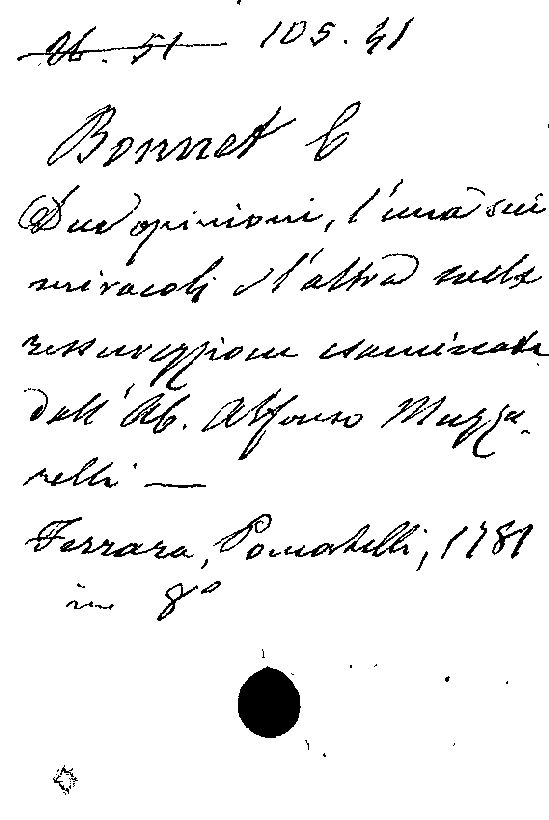 105.41
Bonnet C
Due opinioni, l'una sui
miracoli e l'altra sulla
ressurezione esaminate
dall'Ab. Alfonso Muzza-
relli —
Ferrara, Pomatelli, 1781
in 8°